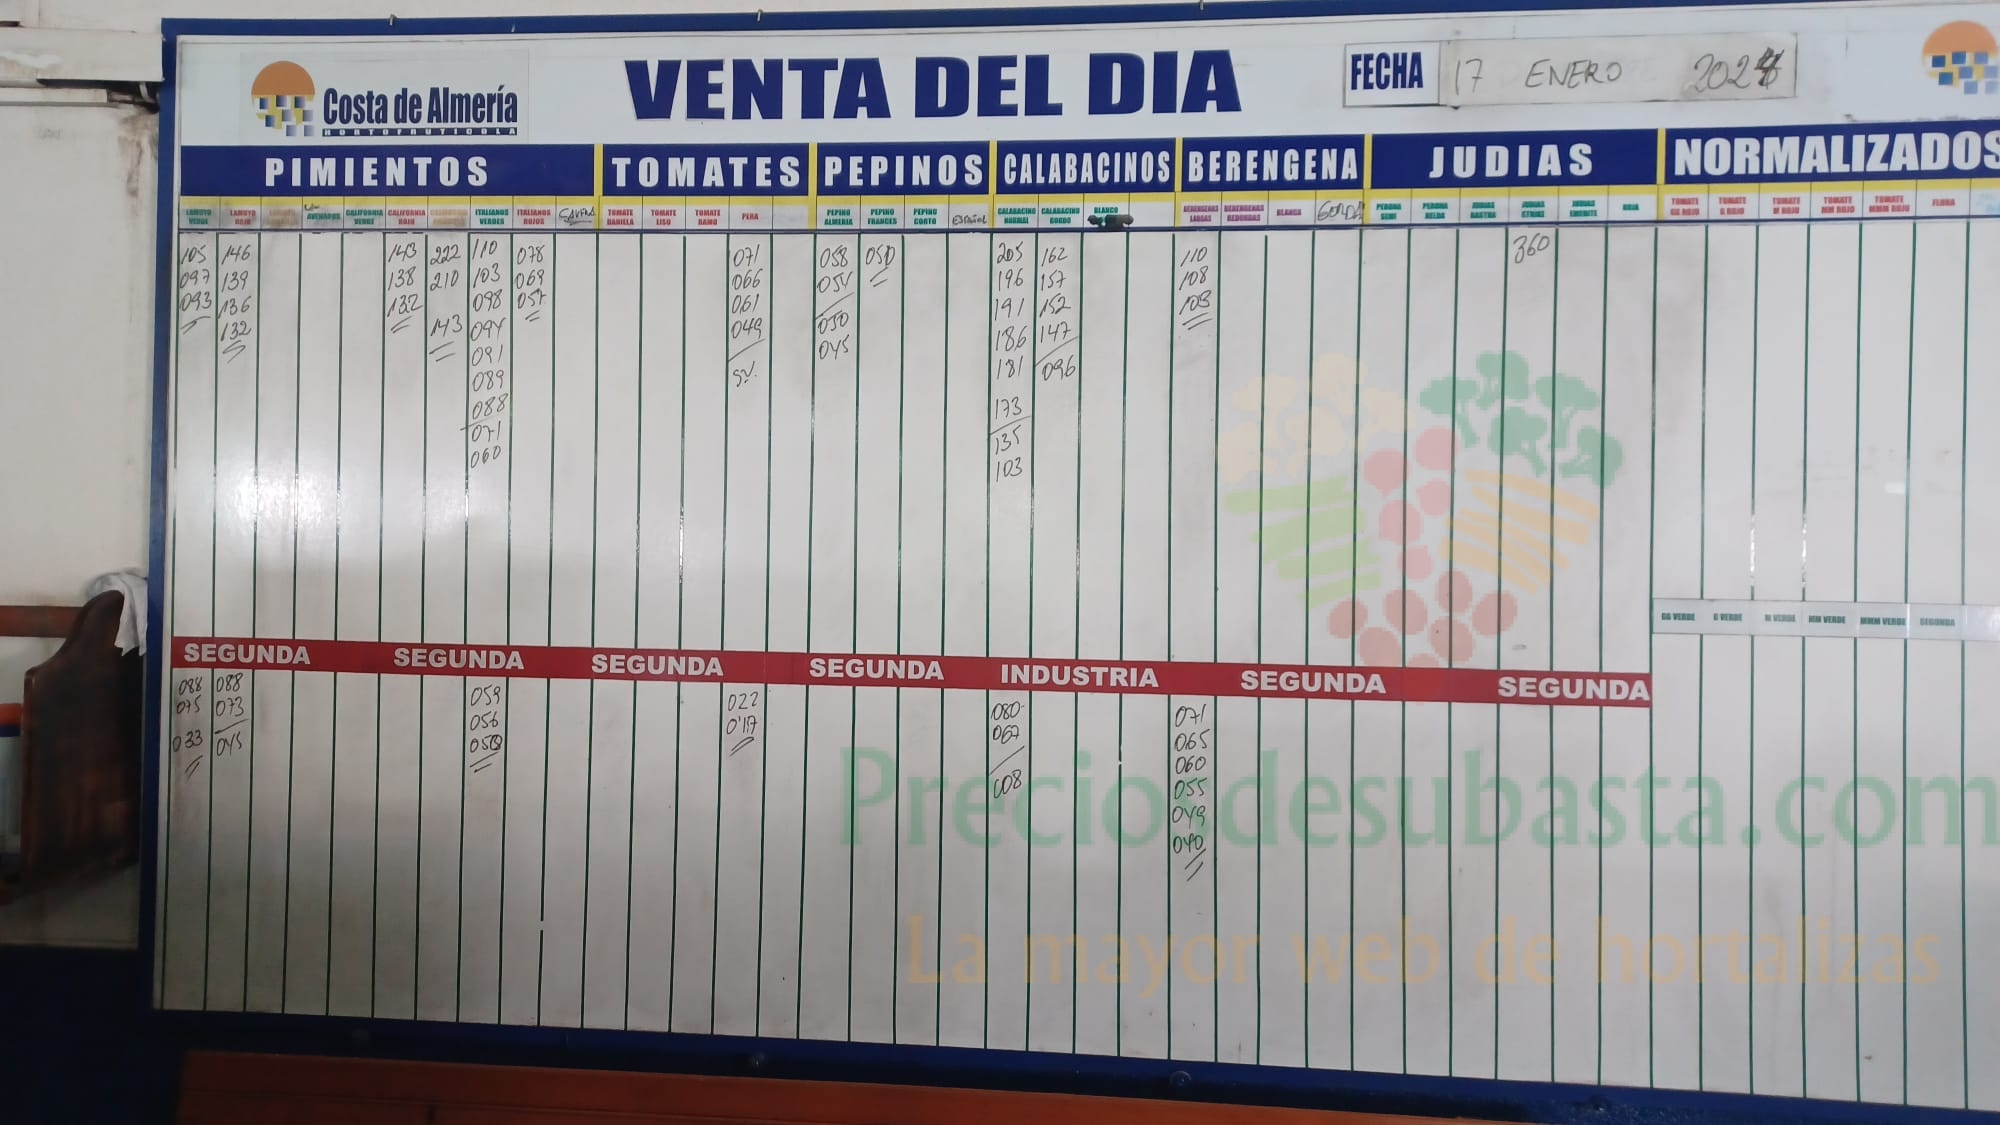 Costa de Almería
HORTOFRUTICOLA
VENTA DEL DIA
FECHA 17 ENERO 2024
PIMIENTOS TOMATES PEPINOS CALABACINOS BERENGENA JUDIAS NORMALIZADOS
LAMUYO VERDE
LAMUYO ROJO
ASURADOS
CALIFORNIA VERDE
CALIFORNIA ROJO
ITALIANOS VERDES
ITALIANOS ROJOS
TOMATE DANIELA
TOMATE LISO
TOMATE RAMO
PERA
PEPINO ALMERIA
PEPINO FRANCES
PEPINO CORTO
ESPAÑOL
CALABACINO NORMAL
CALABACINO GORDO
BLANCO
BERENGENAS LARGAS
BERENGENAS REDONDAS
BLANCA
GORDA
PERONA SEMI
PERONA HELDA
JUDIAS RASTRA
JUDIAS STRIKE
JUDIAS EMERITE
ROJA
TOMATE GG ROJO
TOMATE G ROJO
TOMATE M ROJO
TOMATE MM ROJO
TOMATE MMM ROJO
FLORA
105 146 143 222 110 078 071 058 050 205 162 110 360
097 139 138 210 103 069 066 054 196 157 108
093 136 132 098 057 061 191 152 103
132 143 094 049 050 186 147
091 045 181 096
089
088 173
071 135
060 103
GG VERDE G VERDE M VERDE MM VERDE MMM VERDE SEGUNDA
SEGUNDA SEGUNDA SEGUNDA SEGUNDA INDUSTRIA SEGUNDA SEGUNDA
088 088 059 022 080 071
075 073 056 0'17 067 065
033 045 050 060
008 055
049
040
Preciosdesubasta.com
La mayor web de hortalizas